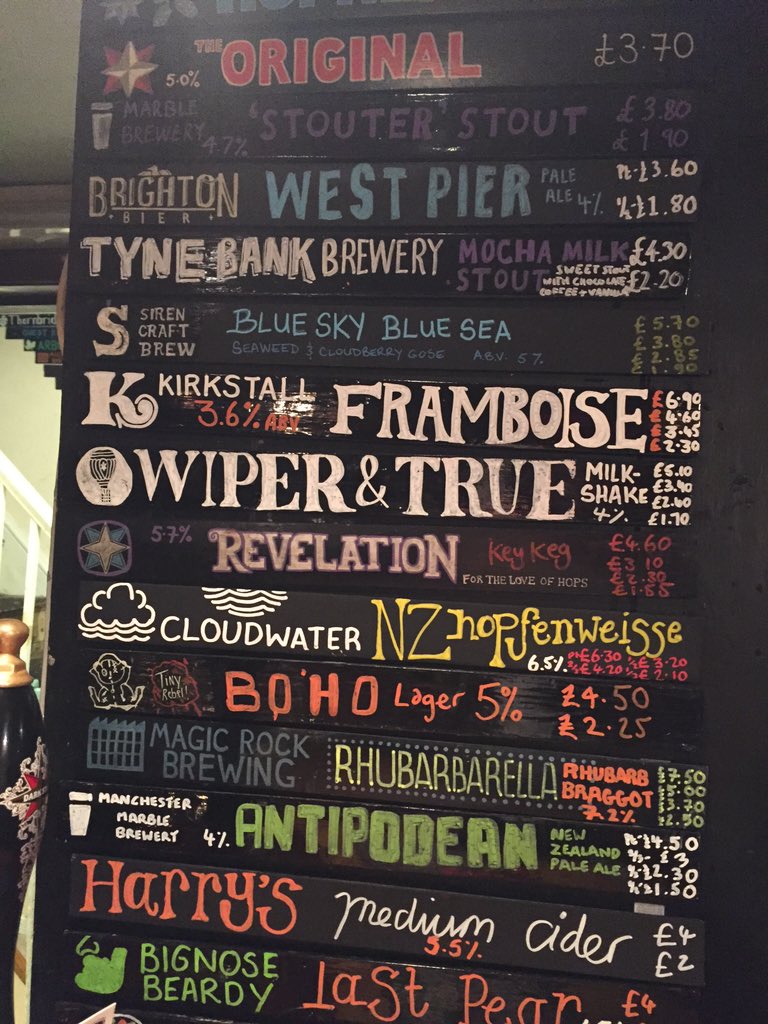 THE ORIGINAL £3.70
5.0%
MARBLE BREWERY 4.7% 'STOUTER' STOUT £3.80
£1.90
BRIGHTON BIER WEST PIER PALE ALE 4% £3.60
½ £1.80
TYNE BANK BREWERY MOCHA MILK STOUT £4.30
SWEET STOUT WITH CHOCOLATE COFFEE + VANILLA £2.20
S SIREN CRAFT BREW BLUE SKY BLUE SEA £5.70
SEAWEED & CLOUDBERRY GOSE ABV. 5% £3.80
£2.85
£1.90
K KIRKSTALL FRAMBOISE £6.90
3.6% ABV £4.60
£3.45
£2.30
WIPER & TRUE MILK-SHAKE 4% £5.10
£3.40
£2.60
£1.70
5.7% REVELATION Key Keg £4.60
FOR THE LOVE OF HOPS £3.10
£2.30
£1.55
CLOUDWATER NZ hopfenweisse
6.5% £6.30 £3.20
£4.20 £2.10
Tiny Rebel! BO'HO Lager 5% £4.50
£2.25
MAGIC ROCK BREWING RHUBARBARELLA RHUBARB BRAGGOT 7.2% £7.50
£5.00
£3.70
£2.50
MANCHESTER MARBLE BREWERY 4% ANTIPODEAN NEW ZEALAND PALE ALE £4.50
£3
£2.30
£1.50
HARRY'S medium cider £4
5.5% £2
BIGNOSE BEARDY Last Pear £4